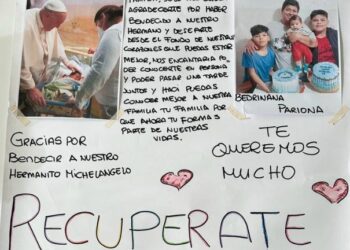 AGRADECERTE POR HABER
BENDECIDO A NUESTRO
HERMANO Y DESEARTE
DESDE EL FONDO DE NUESTROS
CORAZONES QUE PUEDAS ESTAR
MEJOR, NOS ENCANTARIA PO
DER CONOCERTE EN PERSONA
Y PODER PASAR UNA TARDE
JUNTOS Y HACI PUEDAS
CONOCER MEJOR A NUESTRA
FAMILIA TU FAMILIA POR
QUE AHORA TU FORMAS
PARTE DE NUESTRAS
VIDAS.
BEDRIÑANA
PARIONA
GRACIAS POR
BENDECIR A NUESTRO
HERMANITO MICHELANGELO
TE
QUEREMOS
MUCHO
RECUPERATE